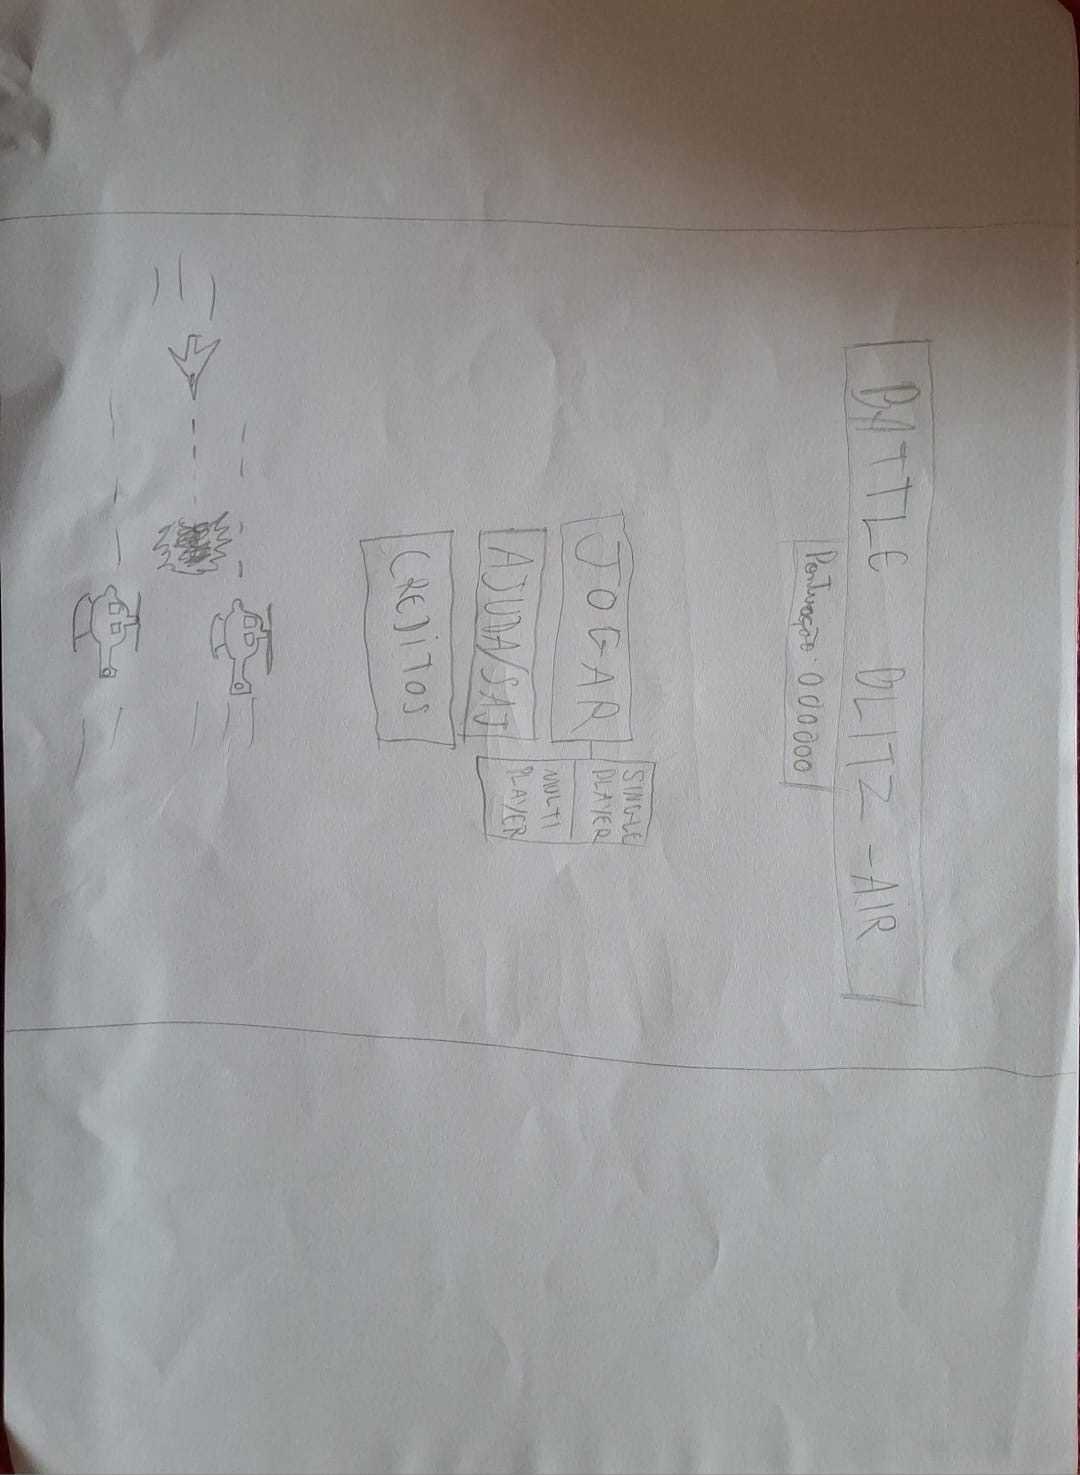 BATTLE BLITZ-AIR
Pontuação: 000000
JOGAR
SINGLE
PLAYER
MULTI
PLAYER
AJUDA/SAJ
CREDITOS